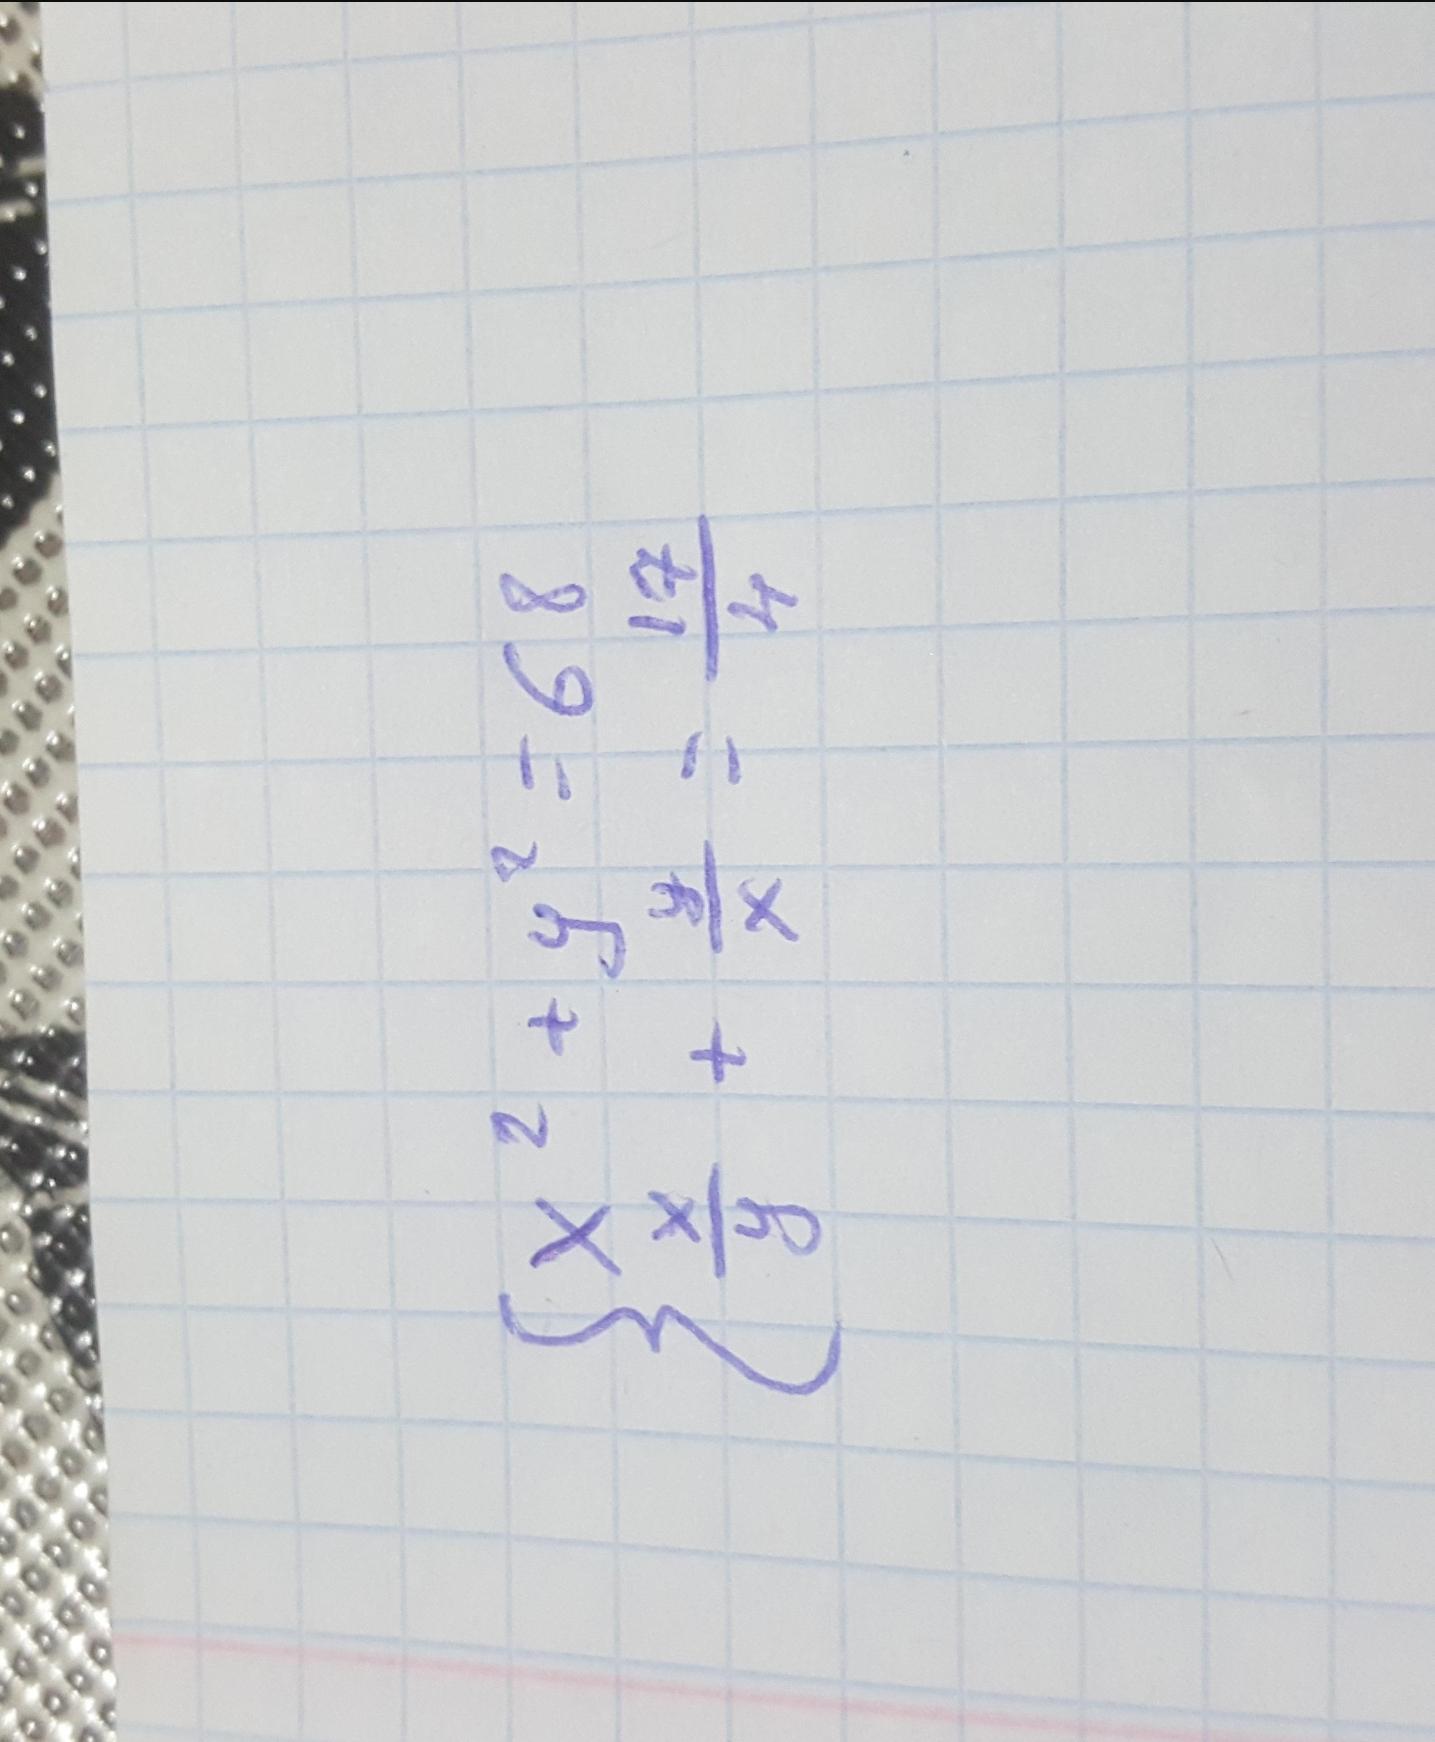 { x² + y² = 68
x/y + y/x = 17/4